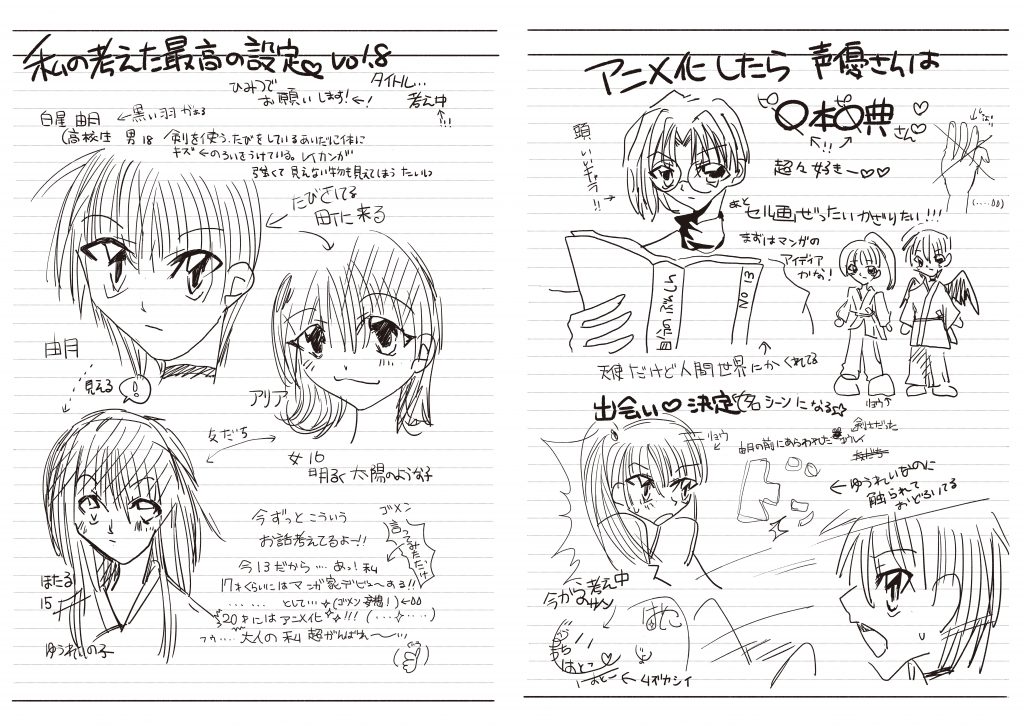 私の考えた最高の設定♡ vol.8
ひみつで
お願いします!←!
タイトル…
考え中
↑!!!
白星 由月 ←黒い羽が
高校生 男 18 剣を使う、たびをしているあいだに体に
キズ←のろいをうけている。レイカンが
強くて見えない物も見えてしまうたいしつ
たびさてる
町に来る
由月
見える
!
アリア
友だち
女 16
明るく太陽のような子
ほたる
15
ゆうれいの子
今ずっとこういう
お話考えてるよー!!
今13だから…あっ!私
17才くらいにはマンガ家デビューする!!
……として…(ゴメン 予想!)
20才にはアニメ化!!!(…)
大人の私 超がんばれ〜…
ゴメン
言ってみただけ
アニメ化したら声優さんは
〇本〇典さん♡
ピ ピ
↑!!
超々好きー♡♡
頭いいキャラ
!!
あと
セル画ぜったいかざりたい!!!
まずはマンガの
アイディア
かな!
NO 13
天使だけど人間世界にかくれてる
リョウ
出会い♡決定(名シーンになる☆
リョウ
由月の前にあらわれた
剣士だった
←ゆうれいなのに
触られて
おどろいてる
考え中
今がつのサイン
はと
まち
はとこ♡
はとー←ムズカシイ